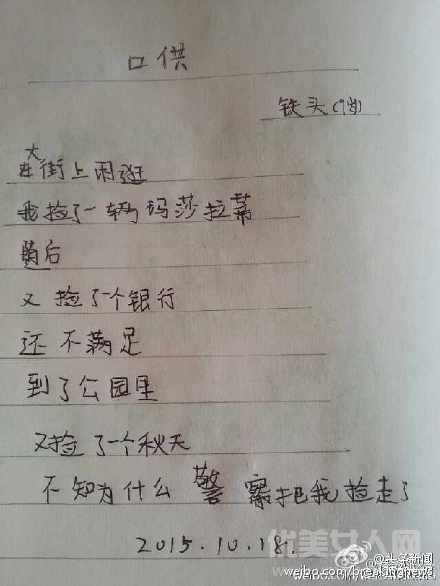 口供
铁头
在大街上闲逛
我捡了一辆玛莎拉蒂
后
又捡了一个银行
还不满足
到了公园里
又捡了一个秋天
不知为什么警察把我捡走了
2015.10.18.
华美女人网
@头条新闻